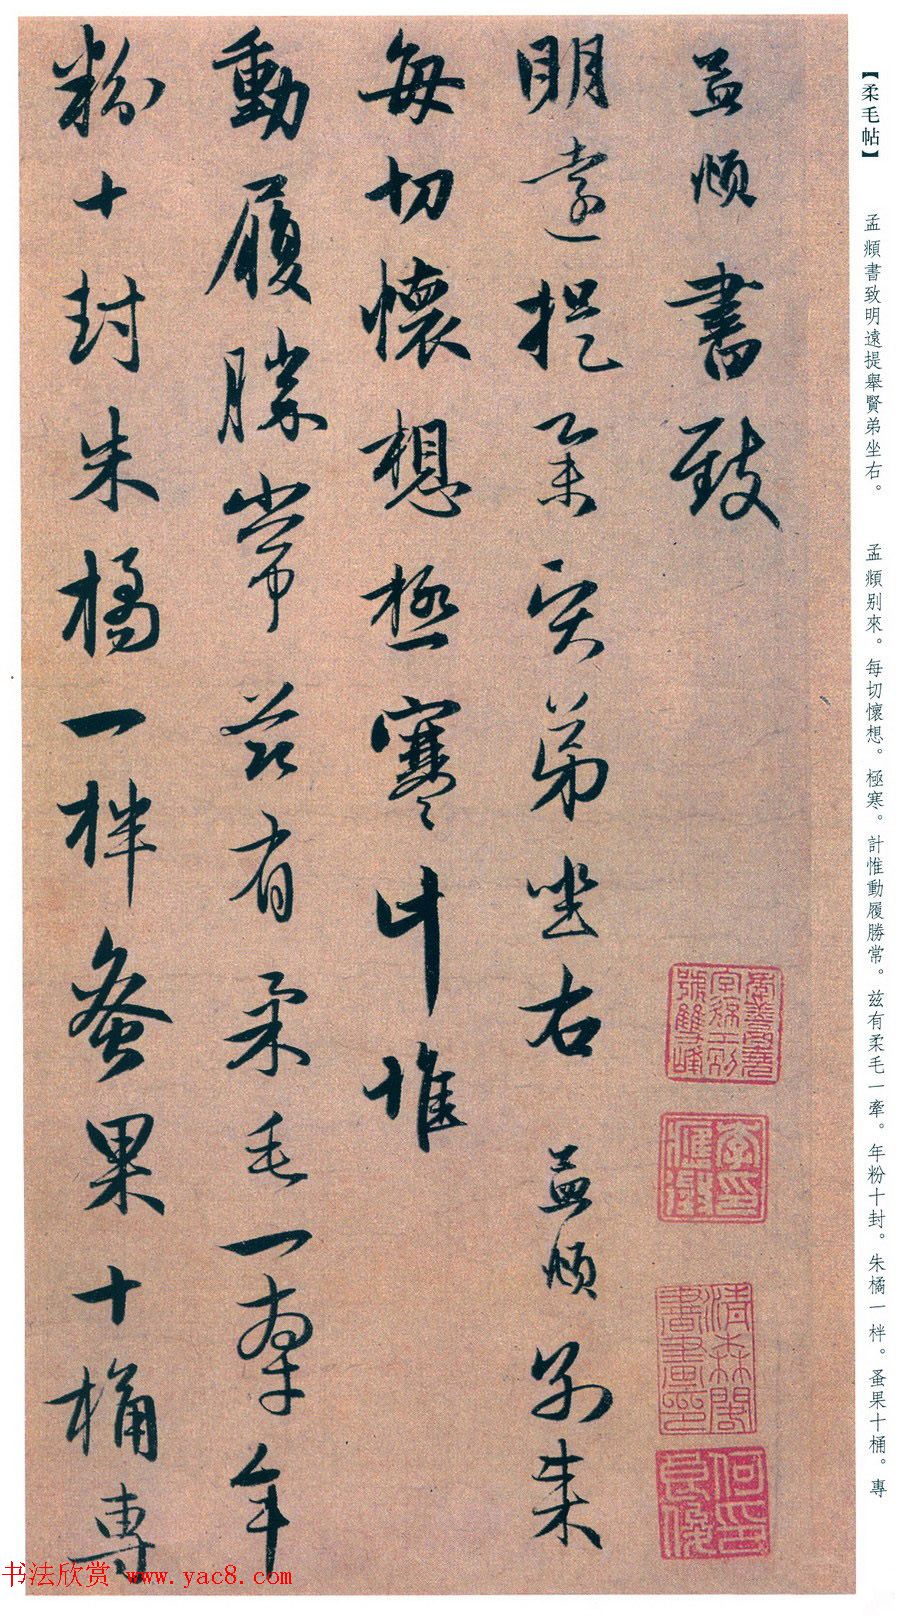 【柔毛帖】
孟頫書致明遠提舉賢弟坐右。
孟頫别來。每切懷想。極寒。計惟動履勝常。兹有柔毛一牽。年粉十封。朱橘一柈。蚤果十桶。專
孟頫書致
明遠提舉賢弟坐右 孟頫别來
每切懷想極寒計惟
動履勝常兹有柔毛一牽年
粉十封朱橘一柈蚤果十桶專
清森閣書畫印
何印良俊
书法欣赏 www.yac8.com